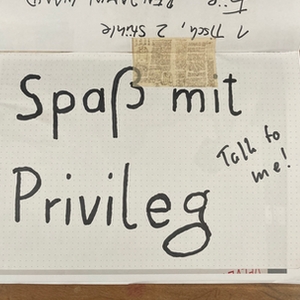 1 Tisch, 2 Stühle
Spaß mit
Privileg
Talk to
me!